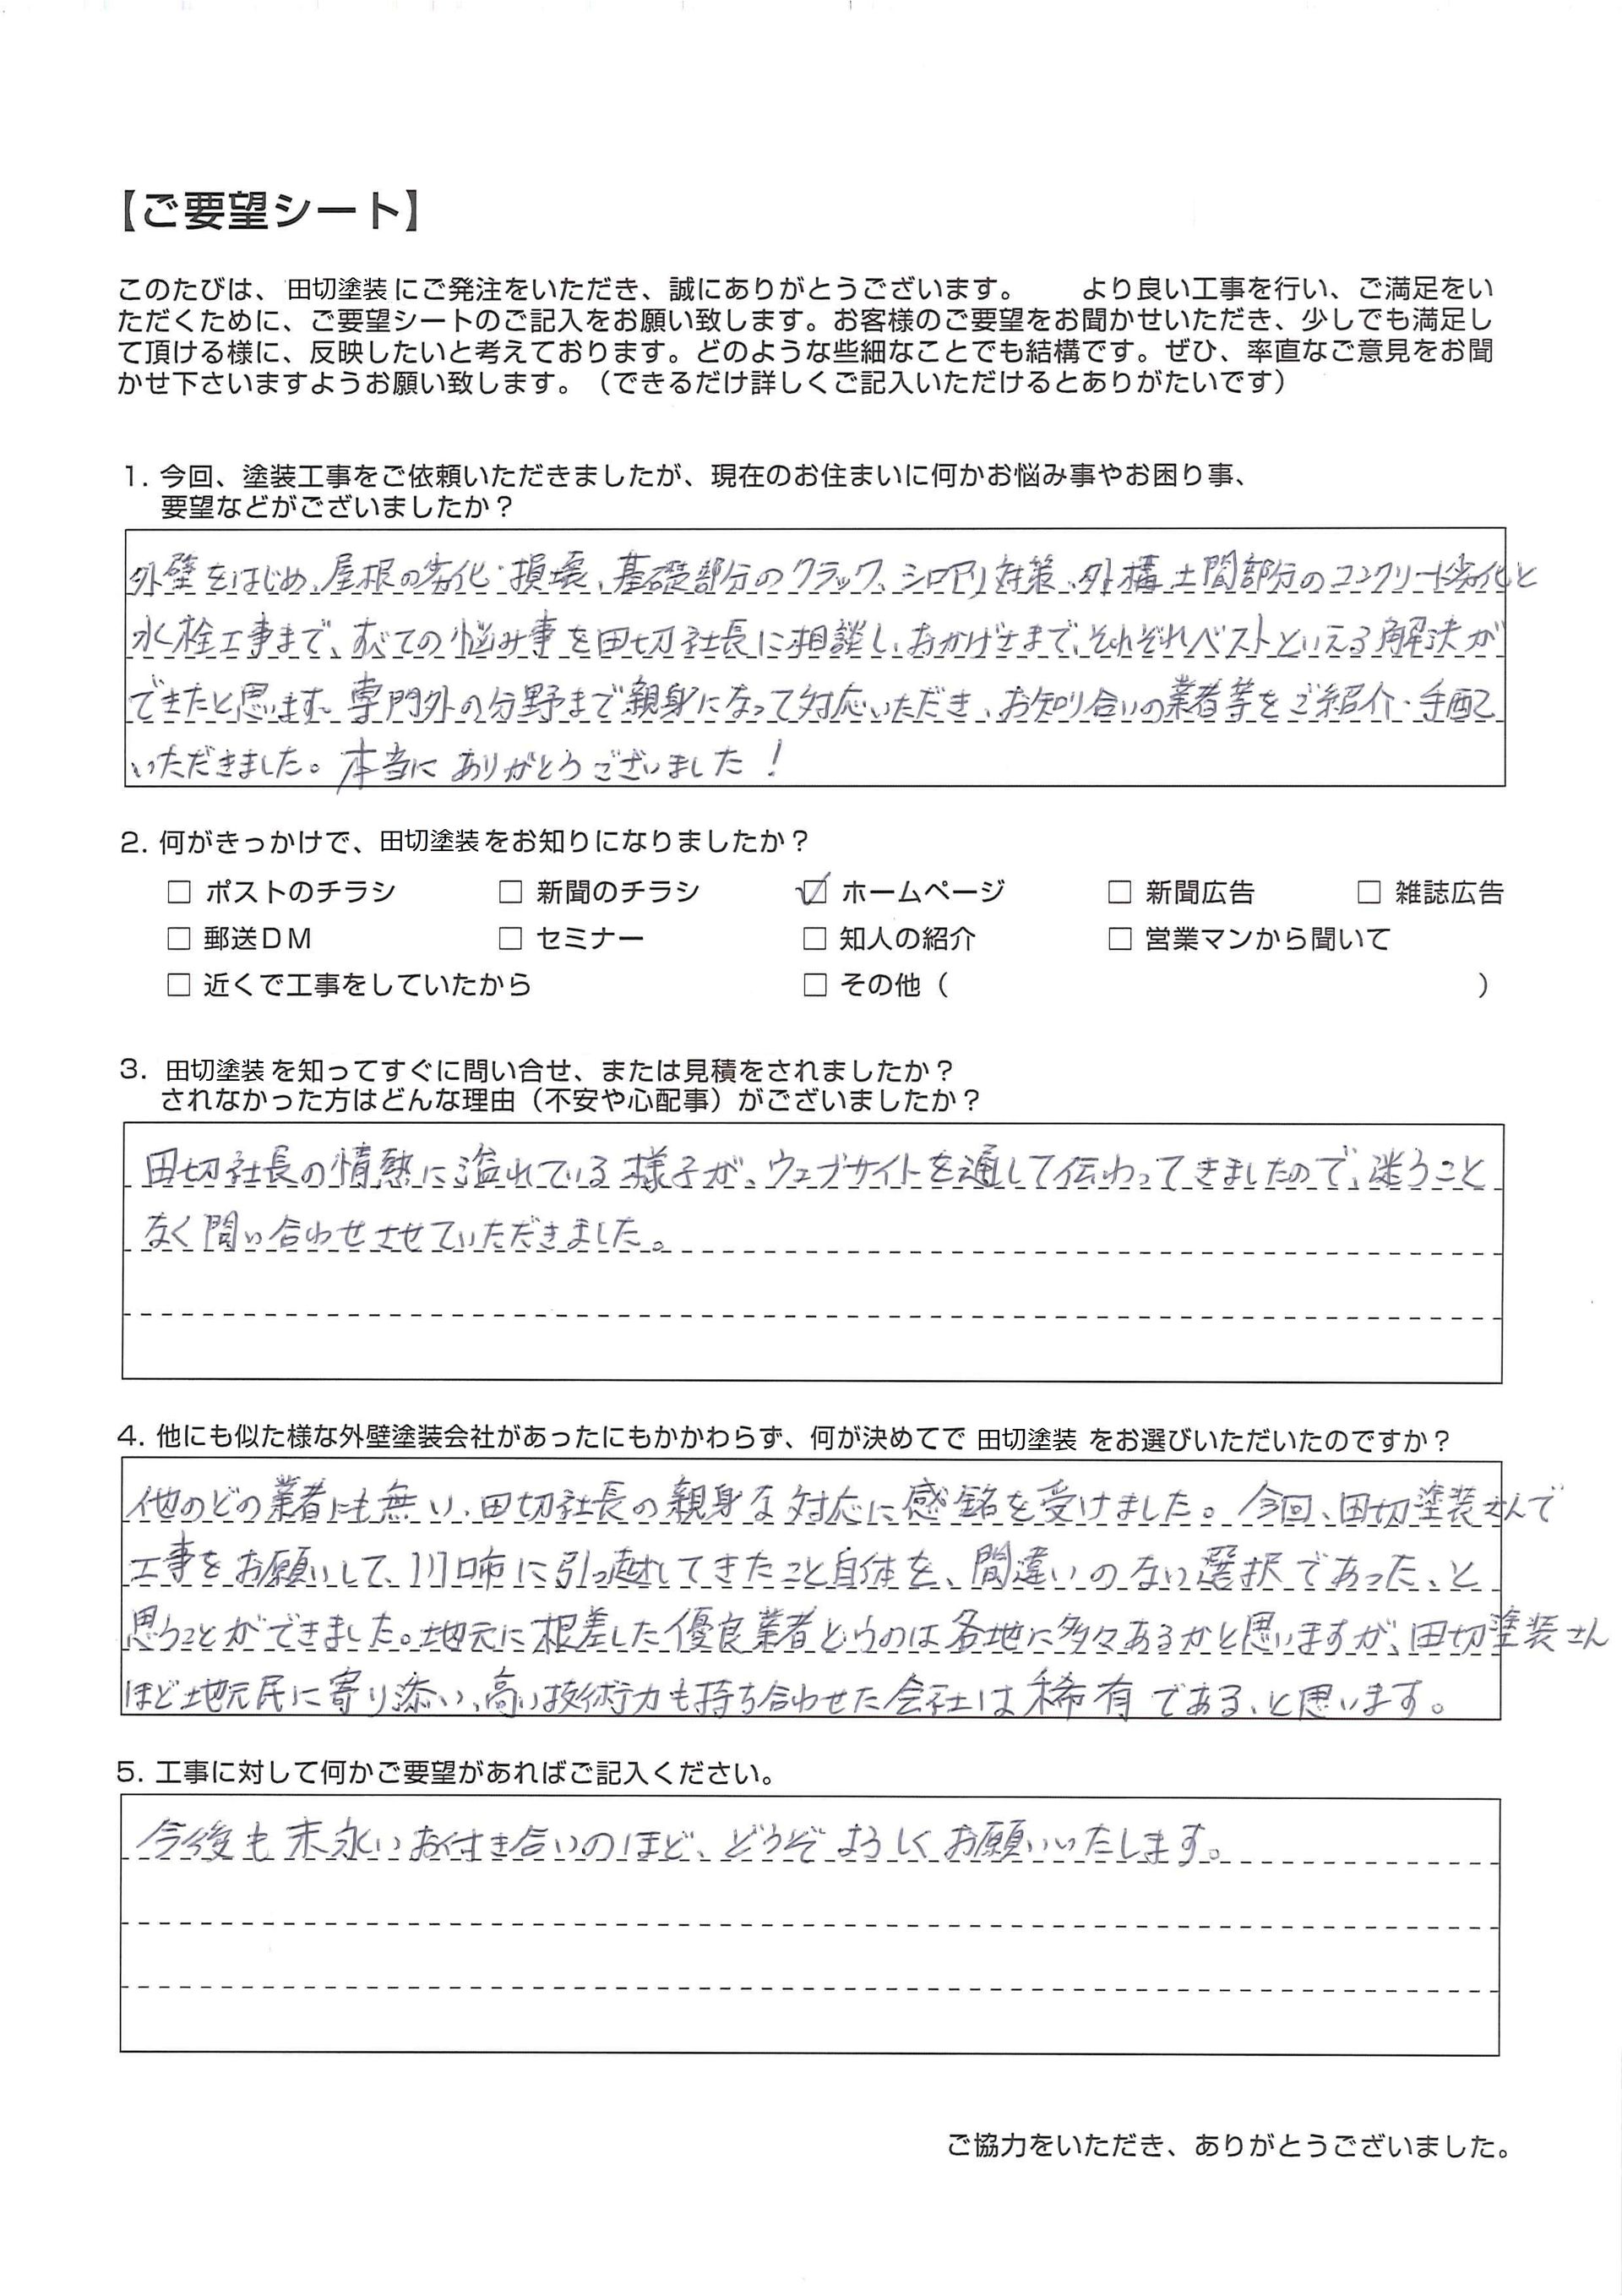 【ご要望シート】
このたびは、田切塗装にご発注をいただき、誠にありがとうございます。　　より良い工事を行い、ご満足をい
ただくために、ご要望シートのご記入をお願い致します。お客様のご要望をお聞かせいただき、少しでも満足し
て頂ける様に、反映したいと考えております。どのような些細なことでも結構です。ぜひ、率直なご意見をお聞
かせ下さいますようお願い致します。（できるだけ詳しくご記入いただけるとありがたいです）
1. 今回、塗装工事をご依頼いただきましたが、現在のお住まいに何かお悩み事やお困り事、
要望などがございましたか？
外壁をはじめ、屋根の劣化・損壊、基礎部分のクラック、シロアリ対策、外構土間部分のコンクリート劣化と
水栓工事まで、すべての悩み事を田切社長に相談し、おかげさまで、それぞれベストといえる解決が
できたと思います。専門外の分野まで親身になって対応いただき、お知り合いの業者等をご紹介・手配
いただきました。本当にありがとうございました！
2. 何がきっかけで、田切塗装をお知りになりましたか？
□ ポストのチラシ　□ 新聞のチラシ　☑ ホームページ　□ 新聞広告　□ 雑誌広告
□ 郵送DM　□ セミナー　□ 知人の紹介　□ 営業マンから聞いて
□ 近くで工事をしていたから　□ その他（　　　）
3. 田切塗装を知ってすぐに問い合せ、または見積をされましたか？
されなかった方はどんな理由（不安や心配事）がございましたか？
田切社長の情熱に溢れている様子が、ウェブサイトを通して伝わってきましたので、迷うこと
なく問い合わせさせていただきました。
4. 他にも似た様な外壁塗装会社があったにもかかわらず、何が決めてで 田切塗装 をお選びいただいたのですか？
他のどの業者にも無い、田切社長の親身な対応に感銘を受けました。今回、田切塗装さんで
工事をお願いして、川口市に引っ越してきたこと自体を、間違いのない選択であった、と
思うことができました。地元に根差した優良業者というのは各地に多々あるかと思いますが、田切塗装さん
ほど地元民に寄り添い、高い技術力も持ち合わせた会社は稀有である、と思います。
5. 工事に対して何かご要望があればご記入ください。
今後も末永いお付き合いのほど、どうぞよろしくお願いいたします。
ご協力をいただき、ありがとうございました。